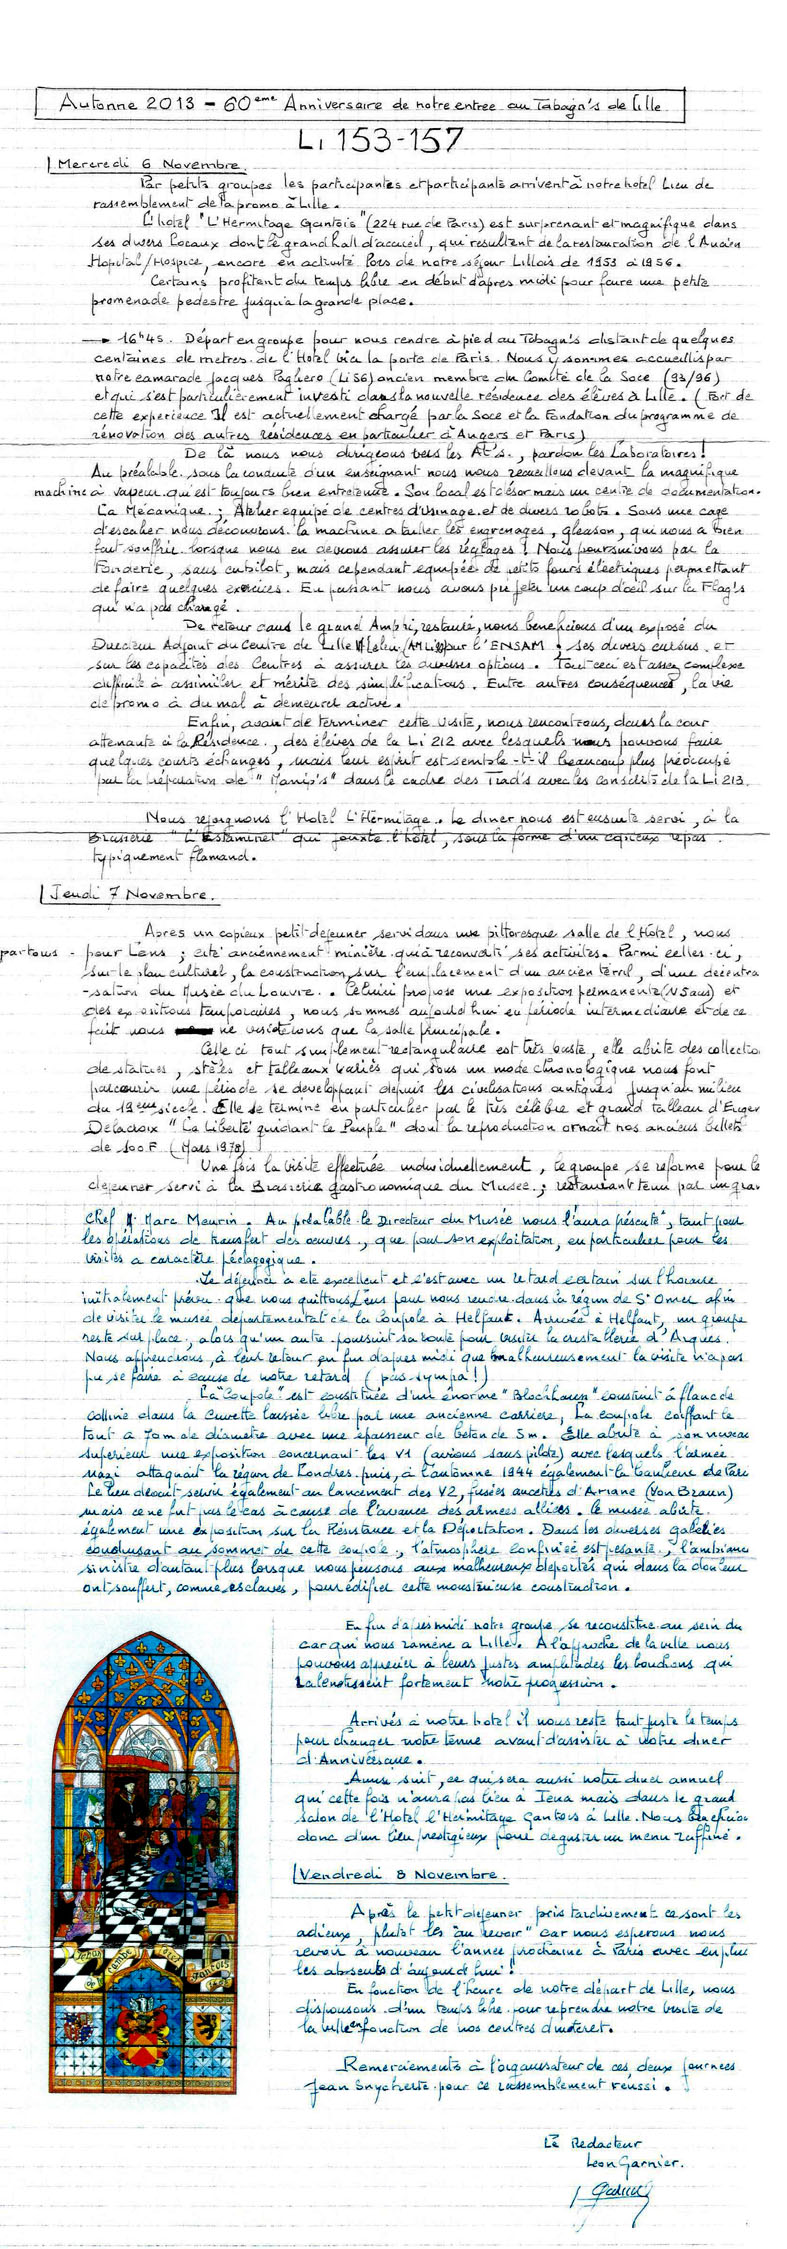 Automne 2013 - 60ème Anniversaire de notre entree au Tabagn's de Lille
Li 153-157
Mercredi 6 Novembre.
Par petits groupes les participantes et participants arrivent à notre hotel Lieu de
rassemblement de la promo à Lille.
L'hotel "L'Hermitage Gantois" (224 rue de Paris) est surprenant et magnifique dans
ses divers locaux dont le grand hall d'accueil, qui resultent de la restauration de l'Ancien
Hopital/Hospice, encore en activité lors de notre séjour Lillois de 1953 à 1956.
Certains profitent du temps libre en début d'apres midi pour faire une petite
promenade pedestre jusqu'a la grande place.
→ 16h45. Départ en groupe pour nous rendre à pied au Tabagn's distant de quelques
centaines de metres de l'Hotel via la porte de Paris. Nous y sommes accueillis par
notre camarade Jacques Pagliero (Li 56) ancien membre du Comité de la Soce (93/96)
et qui s'est particulièrement investi dans la nouvelle résidence des élèves à Lille. (Fort de
cette experience Il est actuellement chargé par la Soce et la Fondation du programme de
rénovation des autres résidences en particulier à Angers et Paris)
De là nous nous dirigeons vers les At's., pardon les Laboratoires!
Au préalable sous la conduite d'un enseignant nous nous recueillons devant la magnifique
machine à vapeur qui est toujours bien entretenue. Son local est désormais un centre de documentation.
La Mécanique.; Atelier equipé de centres d'Usinage et de divers robots. Sous une cage
d'escalier nous découvrons la machine a tailler les engrenages, gleason, qui nous a bien
fait souffrir lorsque nous en devions assurer les réglages! Nous poursuivons par la
Fonderie, sans cubilot, mais cependant equipée de petits fours électriques permettant
de faire quelques exercices. En passant nous avons pu jeter un coup d'oeil sur la Flag's
qui n'a pas changé.
De retour dans le grand Amphi, restauré, nous beneficions d'un exposé du
Directeur Adjoint du Centre de Lille M Leleu (AM Li ) pour l'ENSAM; ses divers cursus et
sur les capacités des Centres à assurer les diverses options. Tout ceci est assez complexe
difficile à assimiler et mérite des simplifications. Entre autres conséquences, la vie
de promo à du mal à demeurer active.
Enfin, avant de terminer cette visite, nous rencontrons, dans la cour
attenante à la Résidence., des élèves de la Li 212 avec lesquels nous pouvons faire
quelques courts échanges, mais leur esprit est semble-t-il beaucoup plus préoccupé
par la préparation de "Manip's" dans le cadre des Trad's avec les conscrits de la Li 213.
Nous rejoignons l'Hotel L'Hermitage. Le diner nous est ensuite servi, à la
Brasserie "L'Estaminet" qui jouxte l'hôtel, sous la forme d'un copieux repas
typiquement flamand.
Jeudi 7 Novembre.
Apres un copieux petit-dejeuner servi dans une pittoresque salle de l'Hotel, nous
partons - pour Lens; cité anciennement minière qui a reconverti ses activites. Parmi celles-ci,
sur le plan culturel, la construction, sur l'emplacement d'un ancien terril, d'une decentra
-sation du Musée du Louvre.. Celui ci propose une exposition permanente (N 5 ans) et
des expositions temporaires, nous sommes aujourd'hui en période intermediaire et de ce
fait nous ne visiterons que la salle principale.
Celle ci tout simplement rectangulaire est très vaste, elle abrite des collectio
de statues, stèles et tableaux variés qui sous un mode chronologique nous font
parcourir une période se developpant depuis les civilisations antiques jusqu'au milieu
du 19ème siecle. Elle se termine en particulier par le très célèbre et grand tableau d'Euger
Delacroix "La Liberté guidant le Peuple" dont la reproduction ornait nos anciens billets
de 100F (Mars 1978)
Une fois la visite effectuée individuellement, le groupe se reforme pour le
dejeuner servi à la Brasserie gastronomique du Musée.; restaurant tenu par un gran
Chef M. Marc Meurin. Au préalable le Directeur du Musée nous l'aura présenté, tant pour
les opérations de transfert des oeuvres., que pour son exploitation, en particulier pour les
visites a caractère pédagogique.
Le déjeuner a ete excellent et c'est avec un retard certain sur l'horaire
initialement prévu que nous quittons Lens pour nous rendre dans la région de St Omer afin
de visiter le musée departemental de la Coupole à Helfaut. Arrivée à Helfaut, un groupe
reste sur place, alors qu'un autre poursuit sa route pour visiter la cristallerie d'Arques.
Nous apprendrons, à leur retour en fin d'apres midi que malheureusement la visite n'a pas
pu se faire à cause de notre retard (pas sympa!)
La "Coupole" est constituée d'un énorme "Blockhaus" construit à flanc de
colline dans la cuvette laissée libre par une ancienne carrière, La coupole coiffant le
tout a 70m de diametre avec une épaisseur de béton de 5m. Elle abrite à son niveau
superieur une exposition concernant les V1 (avions sans pilote) avec lesquels l'armée
nazi attaquait la région de Londres. puis, à l'automne 1944 également la banlieue de Paris
Le lieu devait servir également au lancement des V2, fusées ancetres d'Ariane (Von Braun)
mais ce ne fut pas le cas à cause de l'avance des armees alliées. Le musée abrite
également une exposition sur la Résistance et la Déportation. Dans les diverses galeries
conduisant au sommet de cette coupole, l'atmosphère confinée est pesante., l'ambiance
sinistre d'autant plus lorsque nous pensons aux malheureux deportés qui dans la douleur
ont souffert, comme esclaves, pour édifier cette monstrueuse construction.
En fin d'apres midi notre groupe se reconstitue au sein du
car qui nous ramène a Lille. A l'approche de la ville nous
pouvons apprecier à leurs justes amplitudes les bouchons qui
ralentissent fortement notre progression.
Arrivés à notre hotel il nous reste tout juste le temps
pour changer notre tenue avant d'assister à notre diner
d'Anniversaire.
Ainsi suit, ce qui sera aussi notre diner annuel
qui cette fois n'aura pas lieu à Iena mais dans le grand
salon de l'Hotel l'Hermitage Gantois à Lille. Nous beneficion
donc d'un lieu prestigieux pour deguster un menu raffiné.
Vendredi 8 Novembre.
Après le petit dejeuner pris tardivement ce sont les
adieux, plutot les "au revoir" car nous esperons nous
revoir à nouveau l'année prochaine à Paris avec en plus
les absents d'aujourd'hui!
En fonction de l'heure de notre départ de Lille, nous
disposons d'un temps libre pour reprendre notre visite de
la ville en fonction de nos centres d'interet.
Remerciements à l'organisateur de ces deux journees
Jean Snycherte pour ce rassemblement réussi.
Le Redacteur
Leon Garnier.